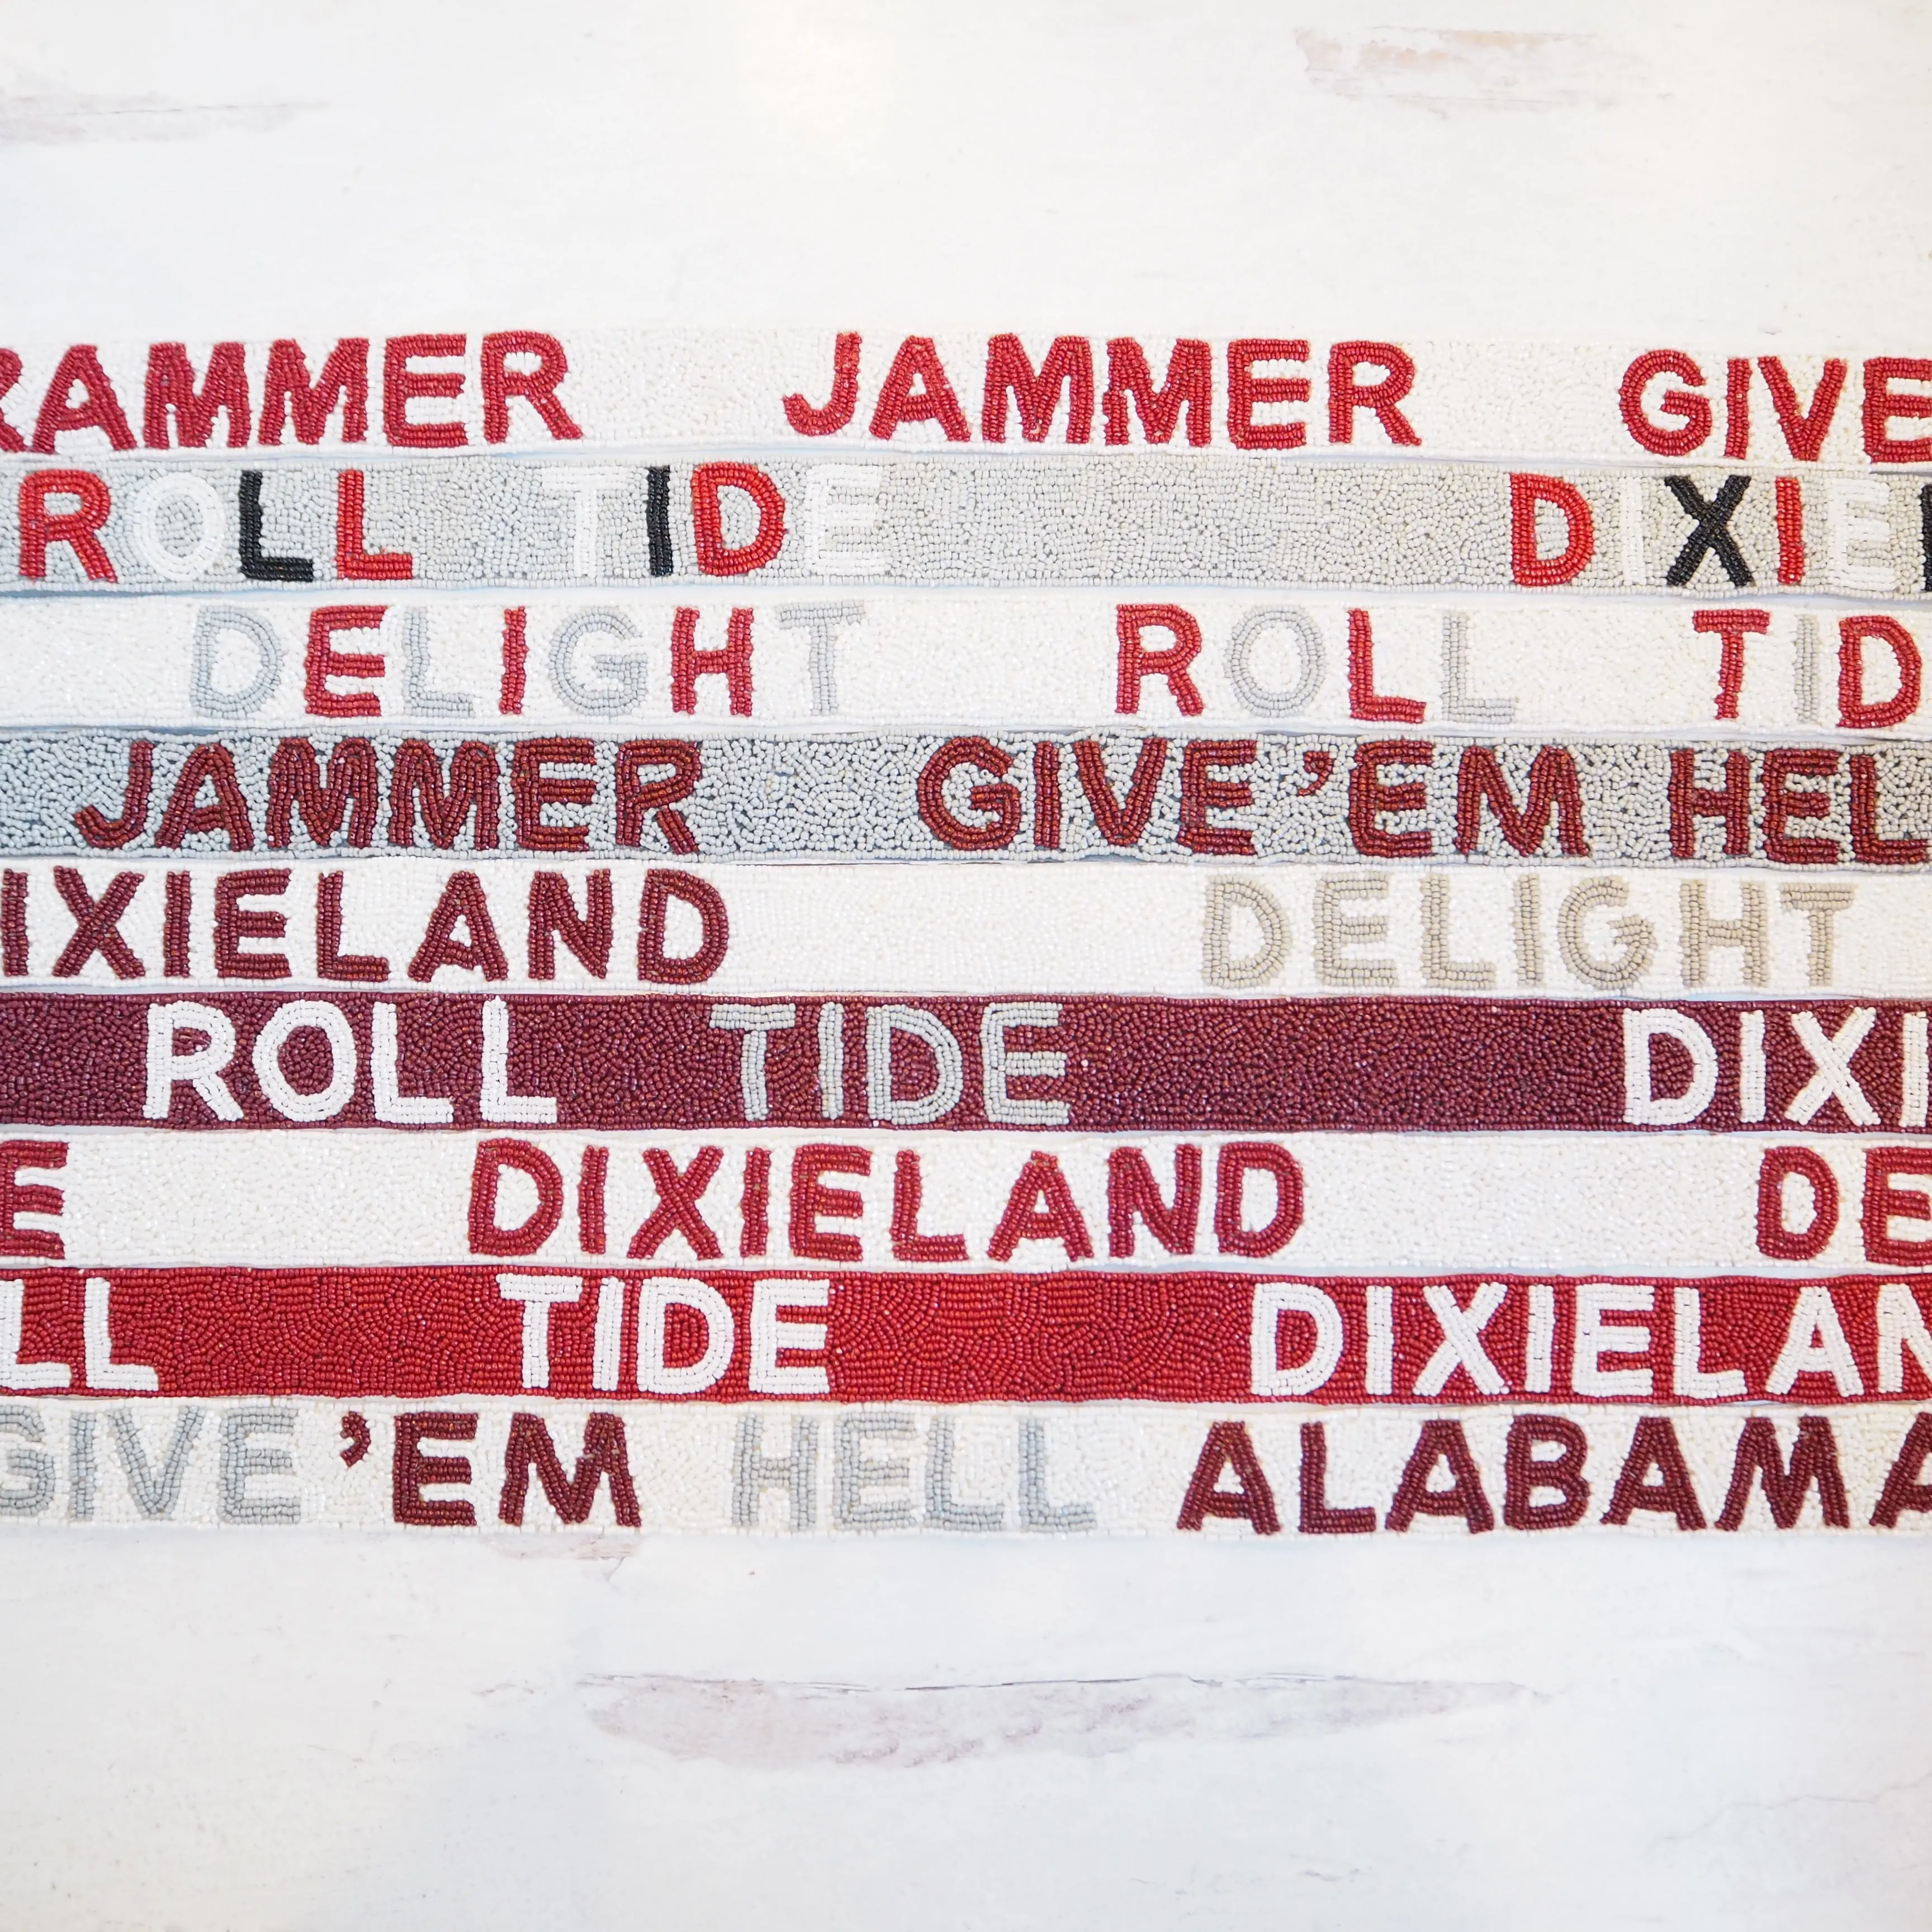 RAMMER JAMMER GIVE
ROLL TIDE DIXIE
DELIGHT ROLL TID
JAMMER GIVE'EM HEL
IXIELAND DELIGHT
ROLL TIDE DIXI
E DIXIELAND DE
LL TIDE DIXIELAN
GIVE 'EM HELL ALABAMA